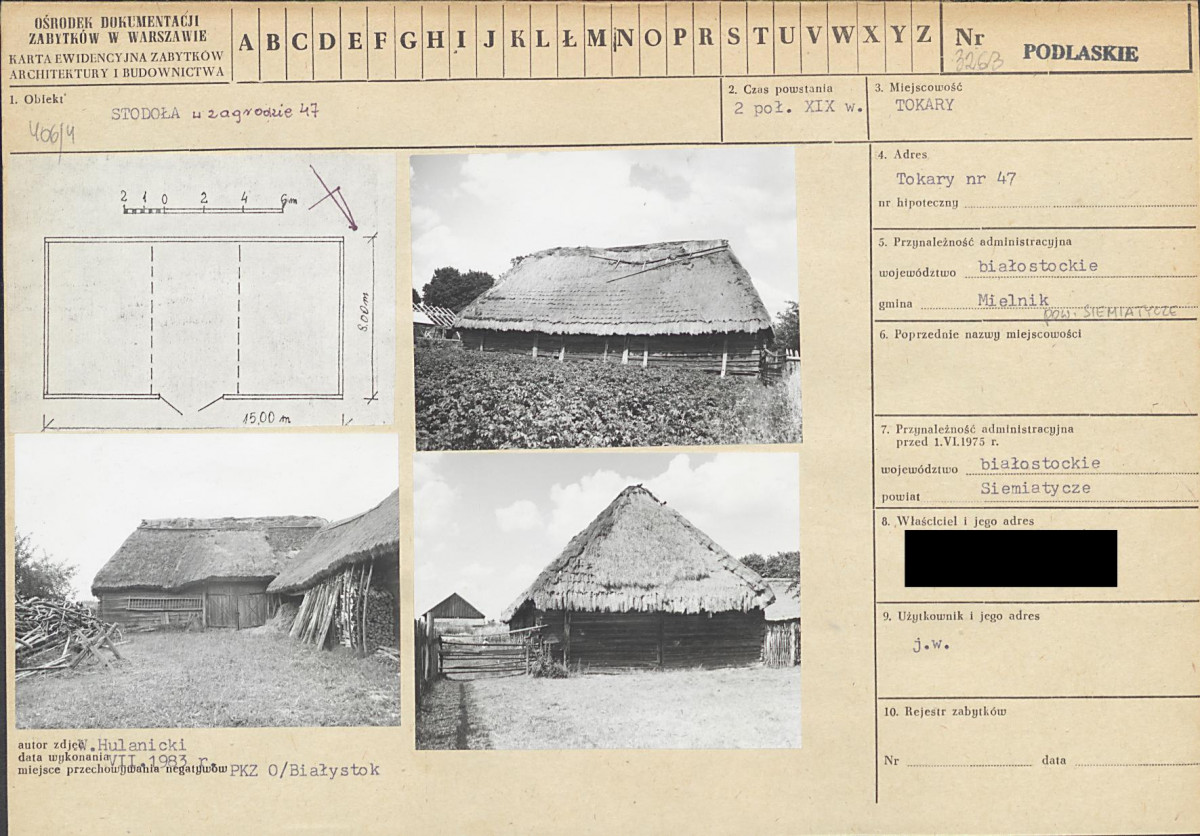 OŚRODEK DOKUMENTACJI
ZABYTKÓW W WARSZAWIE
KARTA EWIDENCYJNA ZABYTKÓW
ARCHITEKTURY I BUDOWNICTWA
A B C D E F G H I J K L Ł M N O P R S T U V W X Y Z
Nr
3263
PODLASKIE
1. Obiekt
STODOŁA w zagrodzie 47
406/4
2. Czas powstania
2 poł. XIX w.
3. Miejscowość
TOKARY
2 1 0 2 4 6m
8.00 m
15,00 m
4. Adres
Tokary nr 47
nr hipoteczny
5. Przynależność administracyjna
województwo białostockie
gmina Mielnik
pow. SIEMIATYCZE
6. Poprzednie nazwy miejscowości
7. Przynależność administracyjna
przed 1.VI.1975 r.
województwo białostockie
powiat Siemiatycze
8. Właściciel i jego adres
9. Użytkownik i jego adres
j.w.
10. Rejestr zabytków
Nr data
autor zdjęć W.Hulanicki
data wykonania VII.1983 r.
miejsce przechowywania negatywów PKZ O/Białystok